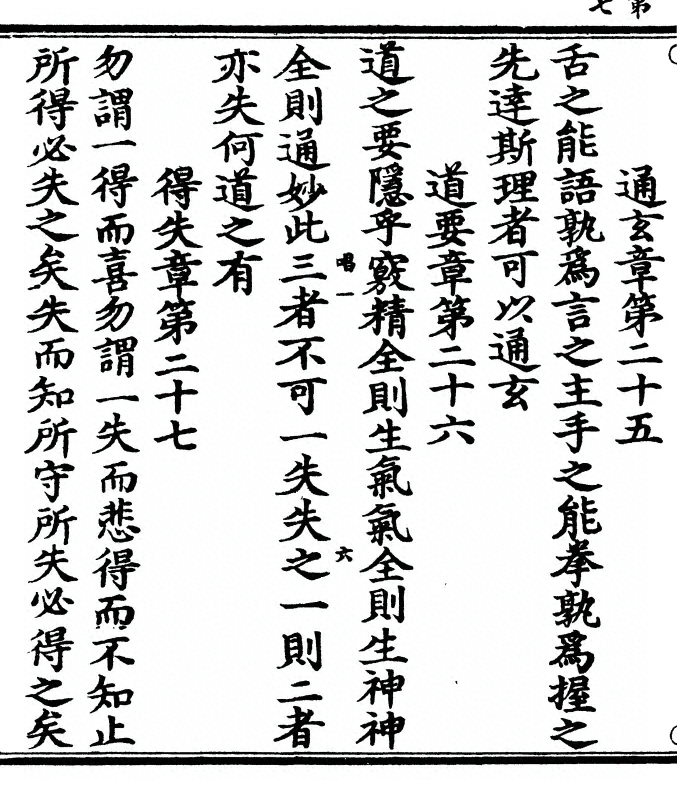 第
七
通玄章第二十五
舌之能語孰爲言之主手之能拳孰爲握之
先達斯理者可以通玄
道要章第二十六
道之要隱乎竅精全則生氣氣全則生神神
唱一
六
全則通妙此三者不可一失失之一則二者
亦失何道之有
得失章第二十七
勿謂一得而喜勿謂一失而悲得而不知止
所得必失之矣失而知所守所失必得之矣